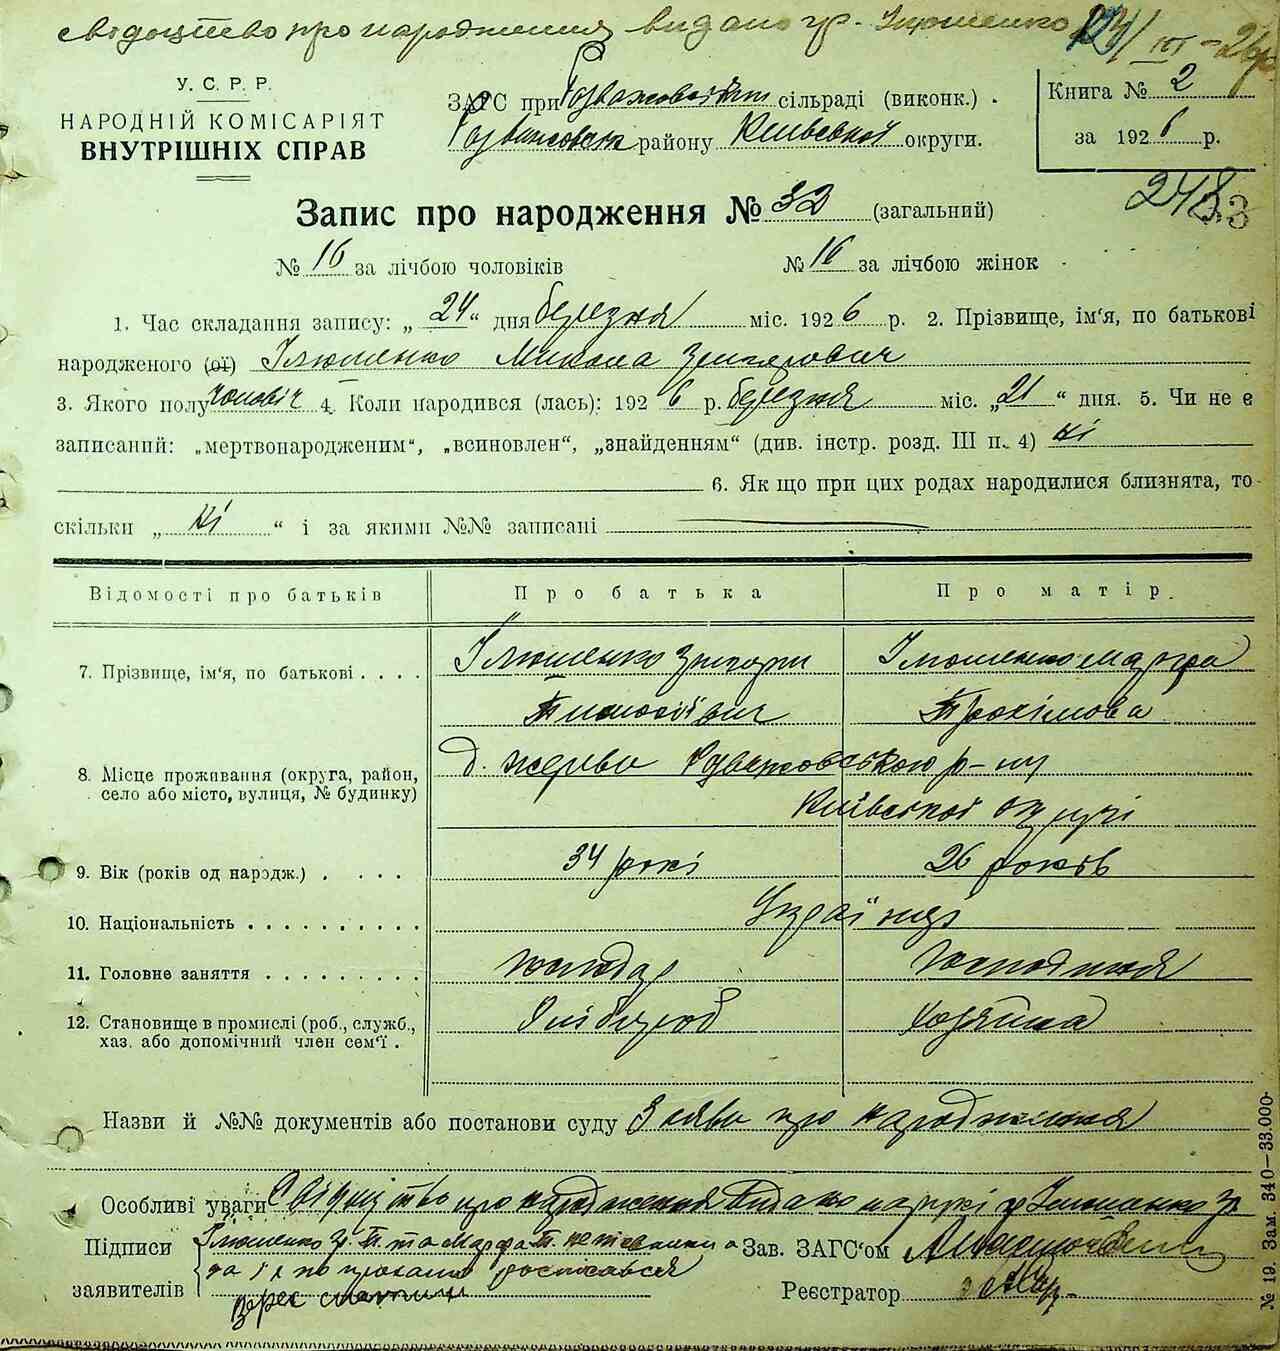 свідоцтво про народження видано гр. Ілюшенко 24/III-26р
У. С. Р. Р.
НАРОДНІЙ КОМІСАРІЯТ
ВНУТРІШНІХ СПРАВ
ЗАГС при Розважовській сільраді (виконк.)
Розважовськ району Київської округи.
Книга № 2
за 1926 р.
248
33
Запис про народження № 32 (загальний)
№ 16 за лічбою чоловіків № 16 за лічбою жінок
1. Час складання запису: „ 24 “ дня березня міс. 1926 р. 2. Прізвище, ім'я, по батькові
народженого (ої) Ілюшенко Микола Григорович
3. Якого полу чоловіч 4. Коли народився (лась): 1926 р. березня міс. „21“ дня. 5. Чи не є
записаний: „мертвонародженим“, „всиновлен“, „знайденням“ (див. інстр. розд. III п. 4) ні
6. Як що при цих родах народилися близнята, то
скільки „ ні “ і за якими №№ записані
Відомості про батьків Про батька Про матір.
7. Прізвище, ім'я, по батькові . . . . Ілюшенко Григорій Ілюшенко Марфа
Тимофійович Трохімова
8. Місце проживання (округа, район,
село або місто, вулиця, № будинку)
д. Жерева Розважовського р-ну
Київської округи
9. Вік (років од народж.) . . . . 34 рокі 26 років
10. Національність . . . . . . . . . . Українці
11. Головне заняття . . . . . . . . . господар Господиня
12. Становище в промислі (роб., служб.,
хаз. або допомічний член сем'ї .
Хлібороб Хазяйка
Назви й №№ документів або постанови суду Заява про народження
Особливі уваги Свідоцтво про народження видано на рукі гр Ілюшенко Гр.
Підписи
заявителів
Ілюшенко Гр. Т. та Марфа Т. неписьменни а
за їх проханю росписався
Зав. ЗАГС'ом
Реєстратор
№ 19. Зам. 340—33.000.